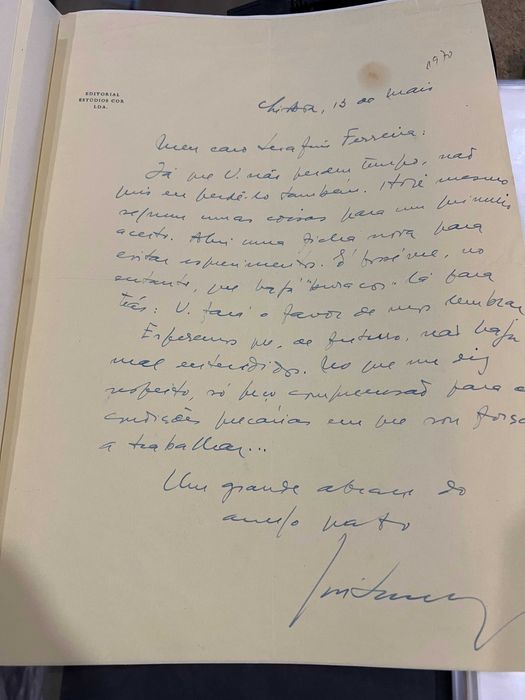 1970
EDITORIAL
ESTÚDIOS COR
LDA.
Lisboa, 13 de maio
Meu caro Serafim Ferreira:
Já que V. não perdeu tempo, não
quis eu perdê-lo também. Hoje mesmo
seguem umas coisas para um primeiro
acerto. Abri uma ficha nova para
evitar esquecimentos. É possível, no
entanto, que haja "buracos" lá para
trás: V. fará o favor de mos lembrar
Esperemos que, de futuro, não haja
mal entendidos. No que me diz
respeito, só peço compreensão para as
condições precárias em que sou forçado
a trabalhar...
Um grande abraço do
amigo grato